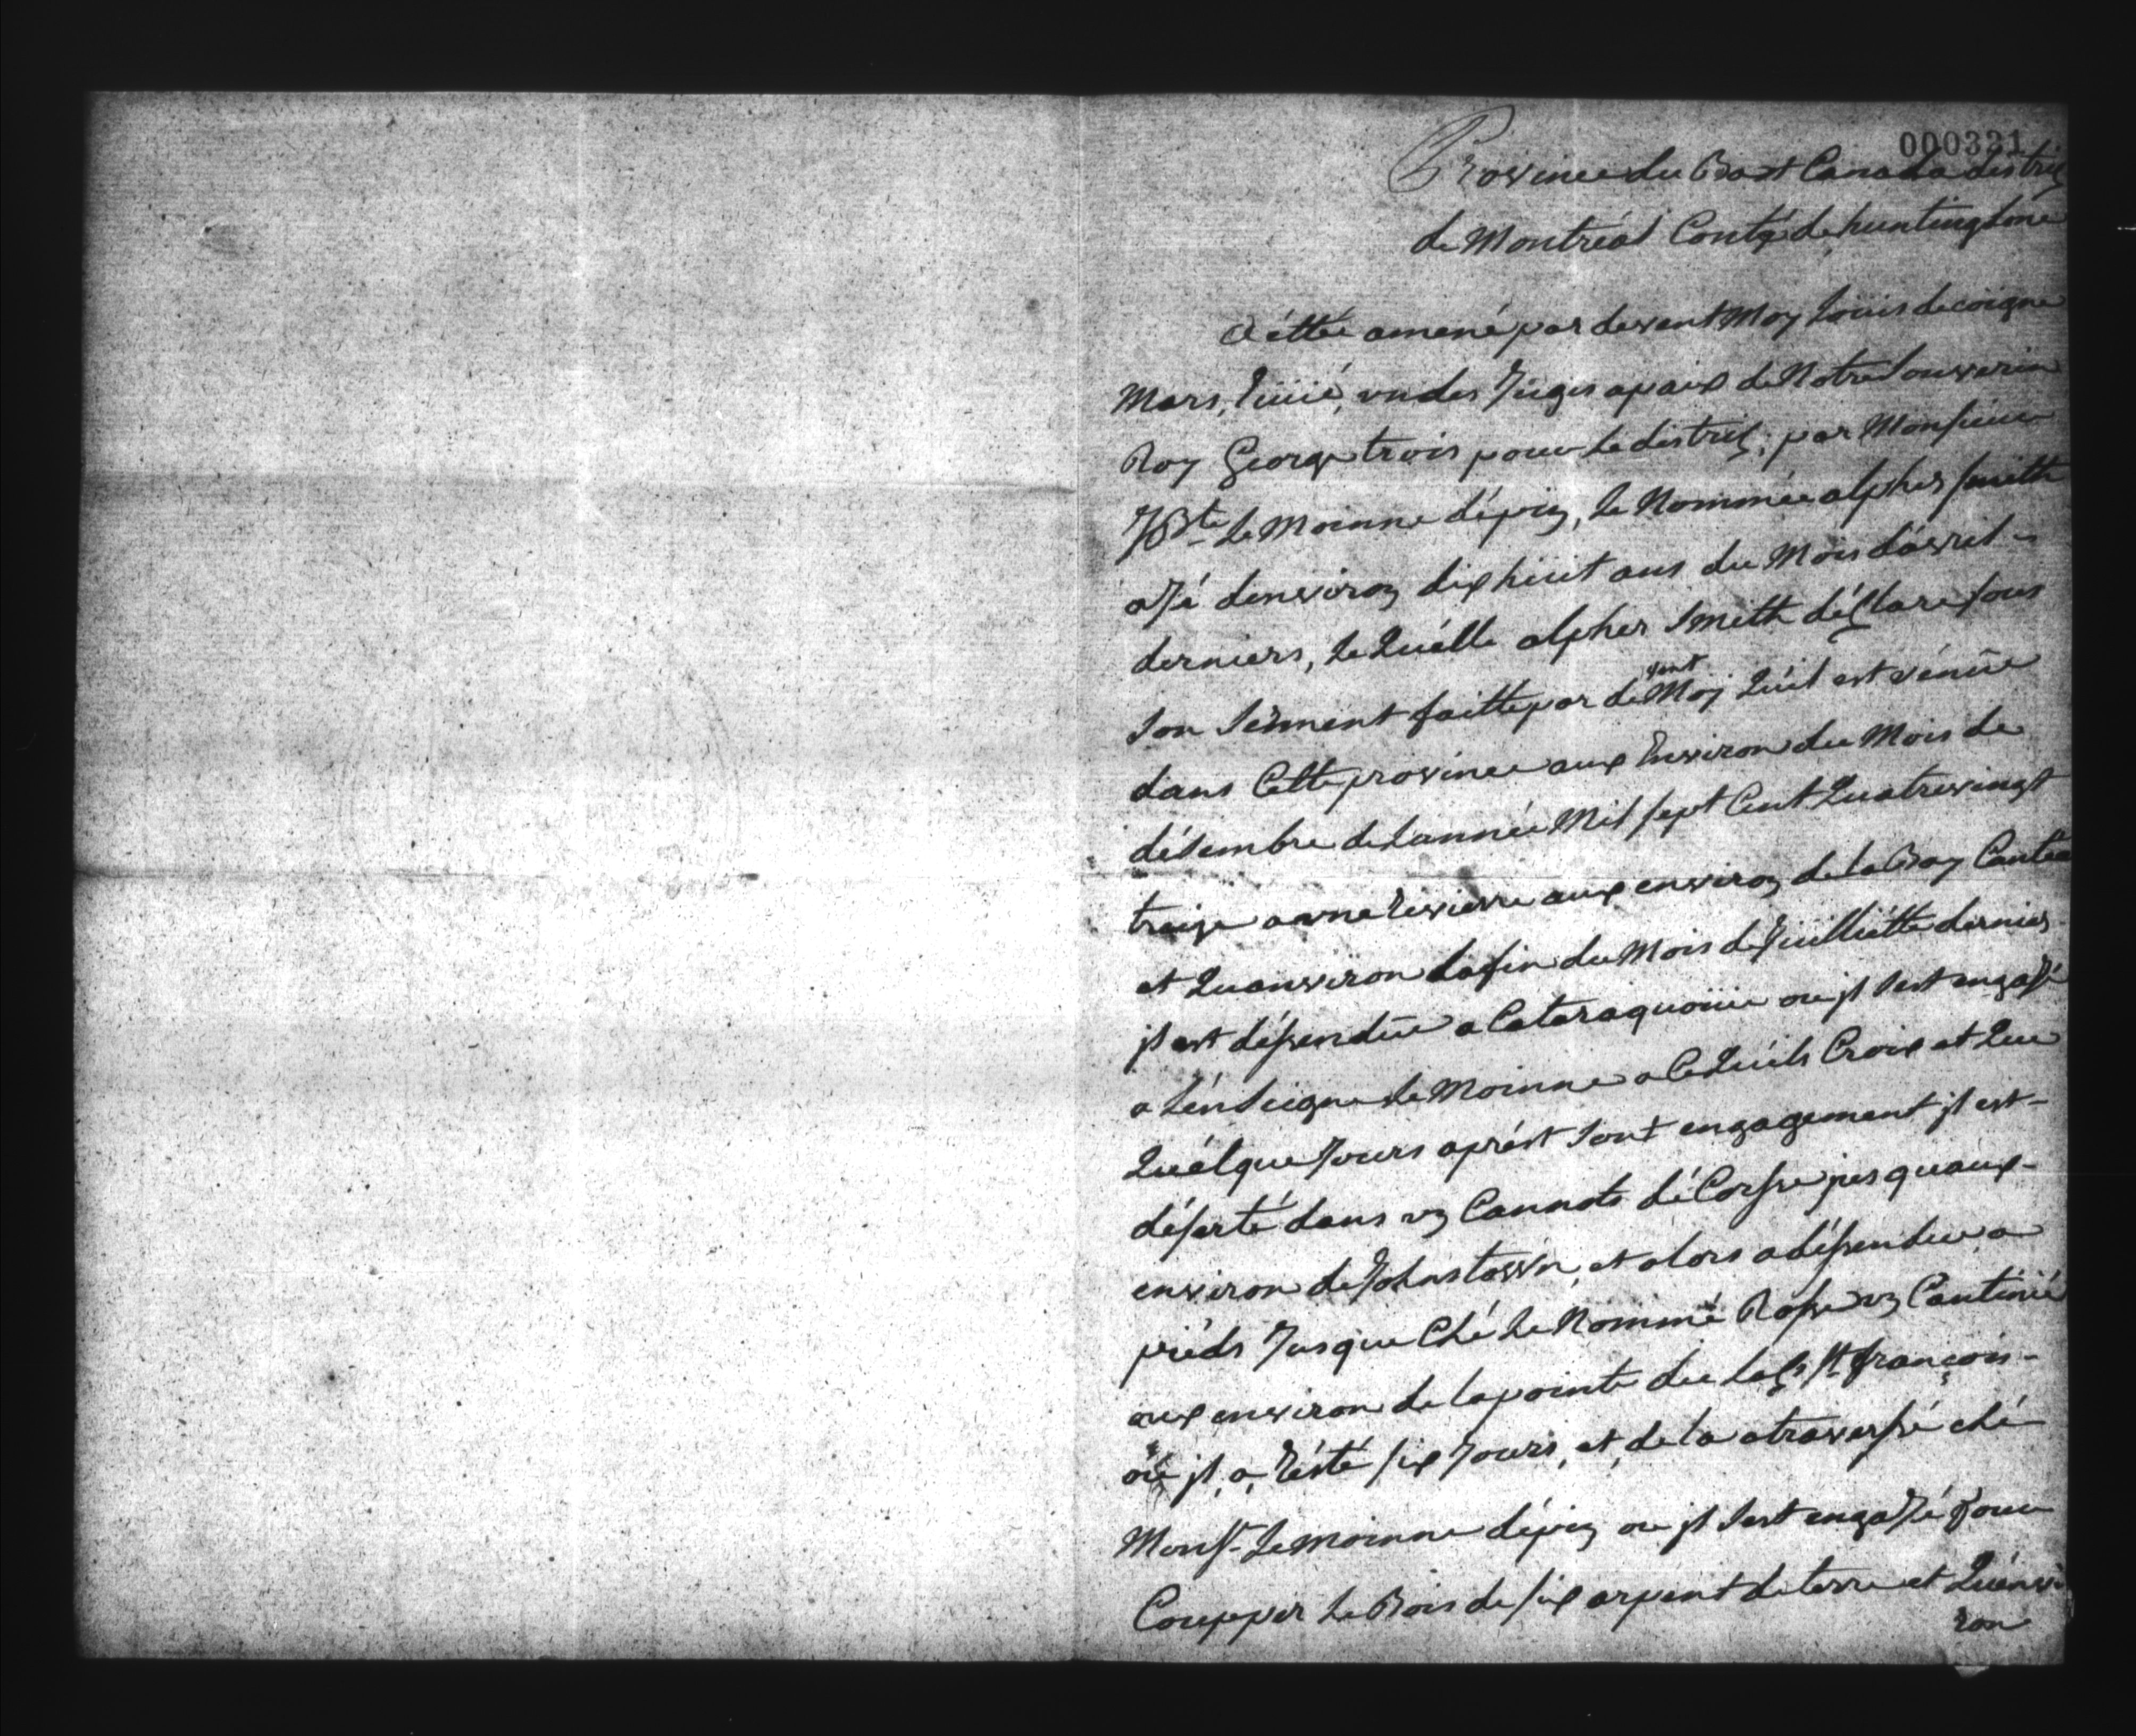 000331
Province du Bast Canada distric
de Montréal Conté de huntingtone
a éttée amené par devent Moy Louis decoigne
Mars, un des Juges a paix de Notre Souverin
Roy George trois pour le distric; par Monsieur
JBte Le Moinne dépin, le Nommée alpher Smith
aJé denviron dix huit ans du Mois davril -
derniers, le Quélle alpher Smith déClare sous
Son Serment faitte par de vent Moj Quil est vénüe
dans Cette province aux Environ du Mois de
désembre de Lannée Mil sept Cent Quatrevingt
treize a une Rivierre aux environ de la Bay Cantéé
et Quanviron la fin du Mois de Juilliétte dernier
jl est désendüe a Cataraquouie ou jl Sest engaJé
a LénSeigne Le Moinne a Ce Quils Croix et Que
Quélque Jours aprést Sont engagement jl est -
déserté dans un Cannots déCorse jusquaux -
environ de Johnstown, et alors a désendue a
piéds Jusque Ché Le Nommé Rosse un Cantinié
aux environ de la pointe du Lac St françois -
ou jl a Résté six Jours, et de la a traversé ché
Monsr Le moinne dépin ou jl Sest engaJé pour
Coupper Le Bois de six arpent de terre et Quénvi
ron